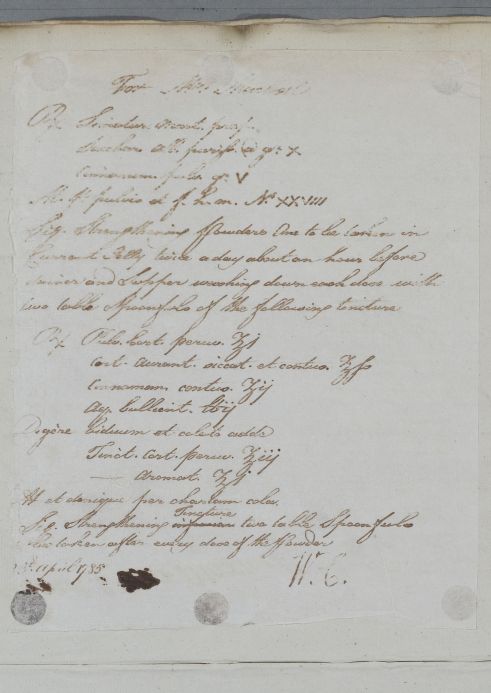 For Mrs.
Rx Limatur. mart. ppt.
Sacchar alb. puriss. a gr. x
Cinnamom pulv. gr. V
M. f. pulvis et f. h. an. No. XXVIIII
Sig. Strengthening Powders One to be taken in
Currant Jelly twice a day about an hour before
Dinner and Supper washing down each dose with
two table Spoonfuls of the following tincture
Rx Pulv. Cort. peruv. ℥j
Cort. aurant. siccat. et contus. ℥ss
Cinnamom. contus. ʒij
Aq. bullient. lbij
Digere biduum et colat. adde
Tinct. Cort. peruv. ℥iij
— aromat. ℥j
et denique per chartam cola.
Sig. Strengthening Tincture two table Spoonfuls
to be taken after every dose of the Powder
April 1785
W. C.